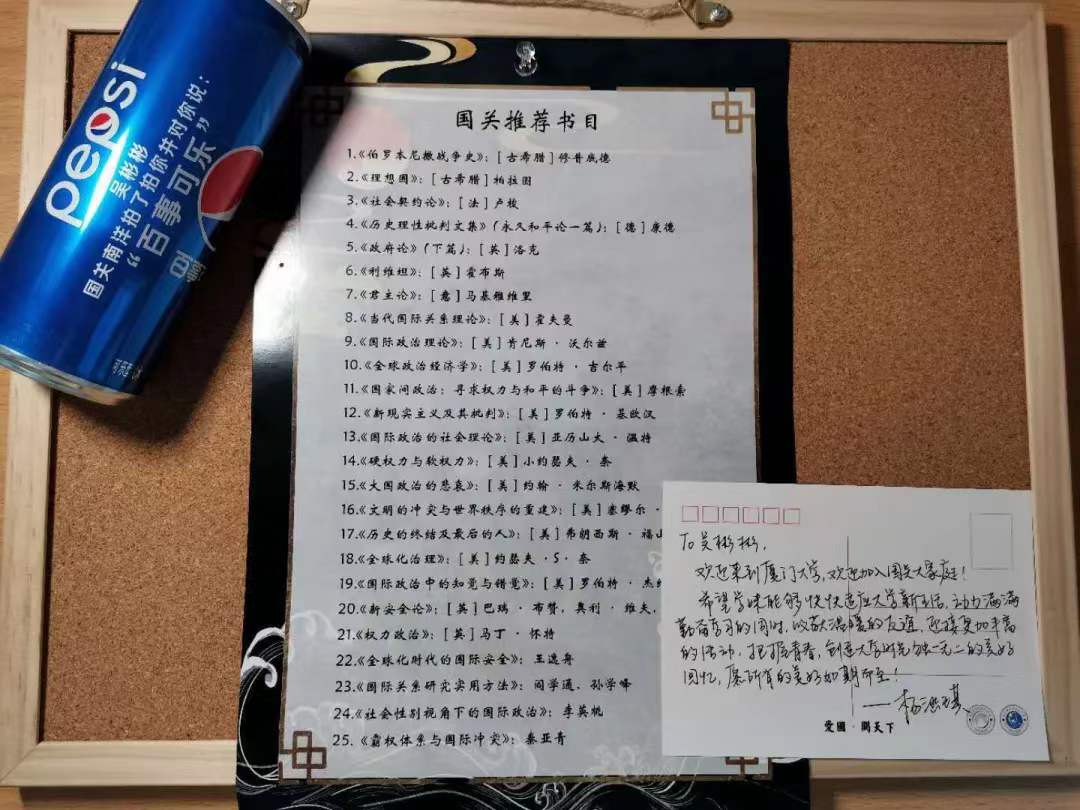 pepsi
吴彬彬
国关南洋拍了拍你并对你说：
“百事可乐”
国关推荐书目
1.《伯罗奔尼撒战争史》：[古希腊]修昔底德
2.《理想国》：[古希腊]柏拉图
3.《社会契约论》：[法]卢梭
4.《历史理性批判文集》(永久和平论一篇)：[德]康德
5.《政府论》(下篇)：[英]洛克
6.《利维坦》：[英]霍布斯
7.《君主论》：[意]马基雅维里
8.《当代国际关系理论》：[美]霍夫曼
9.《国际政治理论》：[美]肯尼斯·沃尔兹
10.《全球政治经济学》：[美]罗伯特·吉尔平
11.《国家间政治：寻求权力与和平的斗争》：[美]摩根索
12.《新现实主义及其批判》：[美]罗伯特·基欧汉
13.《国际政治的社会理论》：[美]亚历山大·温特
14.《硬权力与软权力》：[美]小约瑟夫·奈
15.《大国政治的悲哀》：[美]约翰·米尔斯海默
16.《文明的冲突与世界秩序的重建》：[美]塞缪尔·
17.《历史的终结及最后的人》：[美]弗朗西斯·福山
18.《全球化治理》：[美]约瑟夫·S·奈
19.《国际政治中的知觉与错觉》：[美]罗伯特·杰维
20.《新安全论》：[英]巴瑞·布赞，奥利·维夫，
21.《权力政治》：[英]马丁·怀特
22.《全球化时代的国际安全》：王逸舟
23.《国际关系研究实用方法》：阎学通、孙学峰
24.《社会性别视角下的国际政治》：李英桃
25.《霸权体系与国际冲突》：秦亚青
To 吴彬彬，
欢迎来到厦门大学，欢迎加入国关大家庭！
希望学妹能够快快适应大学新生活，动力满满
勤奋学习的同时，收获温暖的友谊，迎接更加丰富
的活动，把握青春，创造大学时光独一无二的美好
回忆，愿所有的美好如期而至！
爱國·關天下